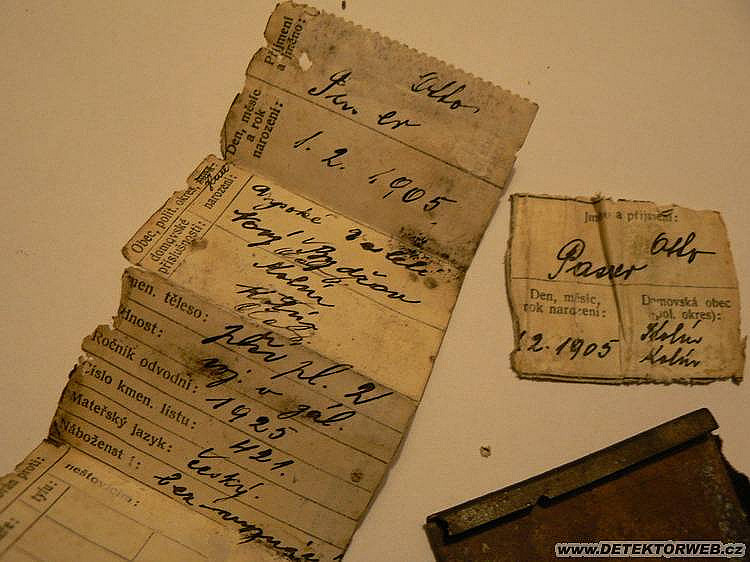 Příjmení
a jméno:
Otto
Den, měsíc
a rok
narození:
1. 2. 1905
Obec, polit. okres,
domovské
příslušnosti:
narození:
Vysoké
Nový Bydžov
Kolín
Kolín
kmen. těleso:
hodnost:
voj. v zál.
Ročník odvodní:
1925
Číslo kmen. listu:
421.
Mateřský jazyk:
český.
Náboženst
bez vyznání
proti:
tyfu:
neštovicím:
Jméno a příjmení:
Otto
Passer
Den, měsíc,
rok narození:
1.2.1905
Domovská obec
(pol. okres):
Kolín
Kolín
www.DETEKTORWEB.cz